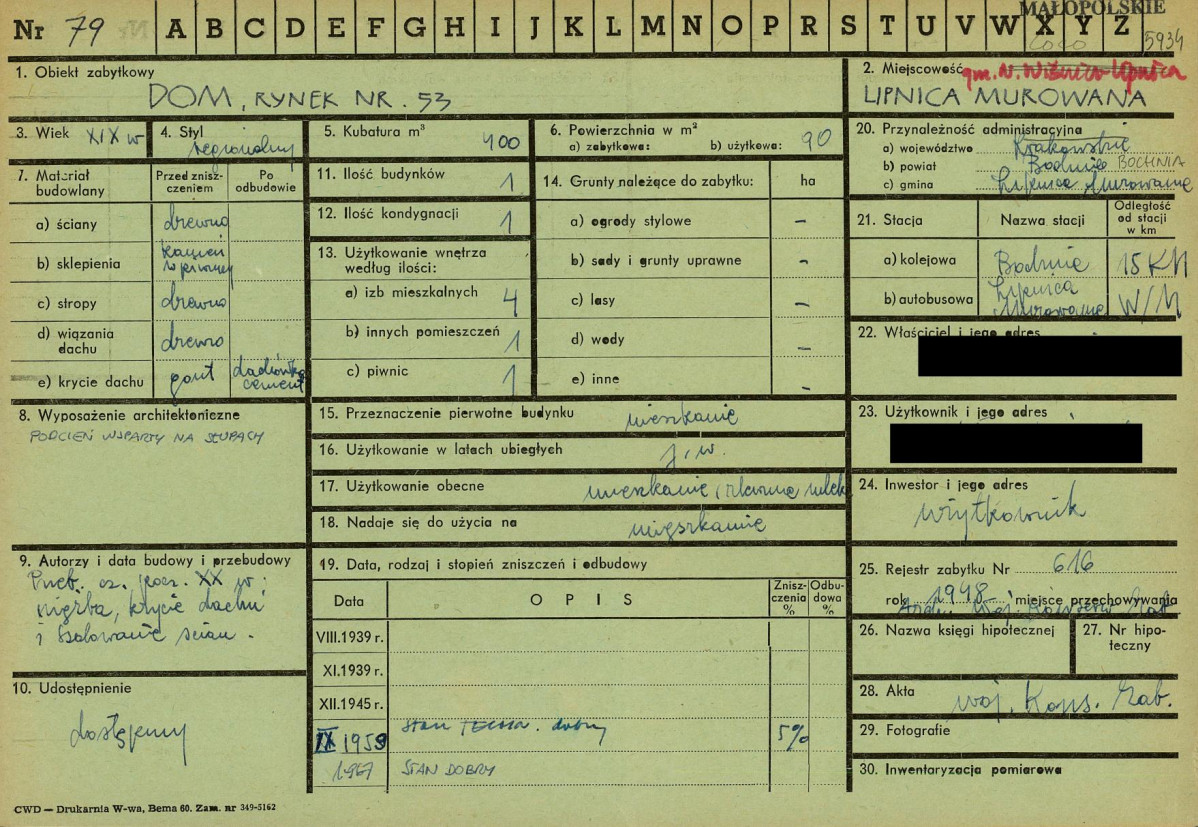 Nr 79 A B C D E F G H I J K L M N O P R S T U V W X Y Z
MAŁOPOLSKIE
5934
1. Obiekt zabytkowy
DOM, RYNEK NR. 53
2. Miejscowość gm. N. Wiśnicz Lipnica
LIPNICA MUROWANA
3. Wiek XIX w
4. Styl regionalny
5. Kubatura m³ 400
6. Powierzchnia w m²
a) zabytkowa: b) użytkowa: 90
20. Przynależność administracyjna
a) województwo Krakowskie
b) powiat Bochnia BOCHNIA
c) gmina Lipnica Murowana
7. Materiał budowlany
Przed zniszczeniem
Po odbudowie
a) ściany drewno
b) sklepienia kamień w piwnicy
c) stropy drewno
d) wiązania dachu drewno
e) krycie dachu gont dachówka cement
11. Ilość budynków 1
12. Ilość kondygnacji 1
13. Użytkowanie wnętrza według ilości:
a) izb mieszkalnych 4
b) innych pomieszczeń 1
c) piwnic 1
14. Grunty należące do zabytku: ha
a) ogrody stylowe –
b) sady i grunty uprawne –
c) lasy –
d) wody –
e) inne –
21. Stacja
Nazwa stacji
Odległość od stacji w km
a) kolejowa Bochnia 15 KM
b) autobusowa Lipnica Murowana W/M
22. Właściciel i jego adres
8. Wyposażenie architektoniczne
PODCIEŃ WSPARTY NA SŁUPACH
15. Przeznaczenie pierwotne budynku mieszkanie
16. Użytkowanie w latach ubiegłych j. w.
17. Użytkowanie obecne mieszkanie, zlewnia mleka
18. Nadaje się do użycia na mieszkanie
23. Użytkownik i jego adres
24. Inwestor i jego adres
użytkownik
9. Autorzy i data budowy i przebudowy
Przeb. cz. pocz. XX w:
więźba, krycie dachu
i szalowanie ścian.
19. Data, rodzaj i stopień zniszczeń i odbudowy
Data
OPIS
Zniszczenia %
Odbudowa %
VIII.1939 r.
XI.1939 r.
XII.1945 r.
IX 1959 stan techn. dobry 5%
1967 STAN DOBRY
10. Udostępnienie
dostępny
25. Rejestr zabytku Nr 616
rok 1948 miejsce przechowywania
Arch. Woj. Konserw. Zab.
26. Nazwa księgi hipotecznej
27. Nr hipoteczny
28. Akta Woj. Kons. Zab.
29. Fotografie
30. Inwentaryzacja pomiarowa
CWD — Drukarnia W-wa, Bema 60. Zam. nr 349-5162